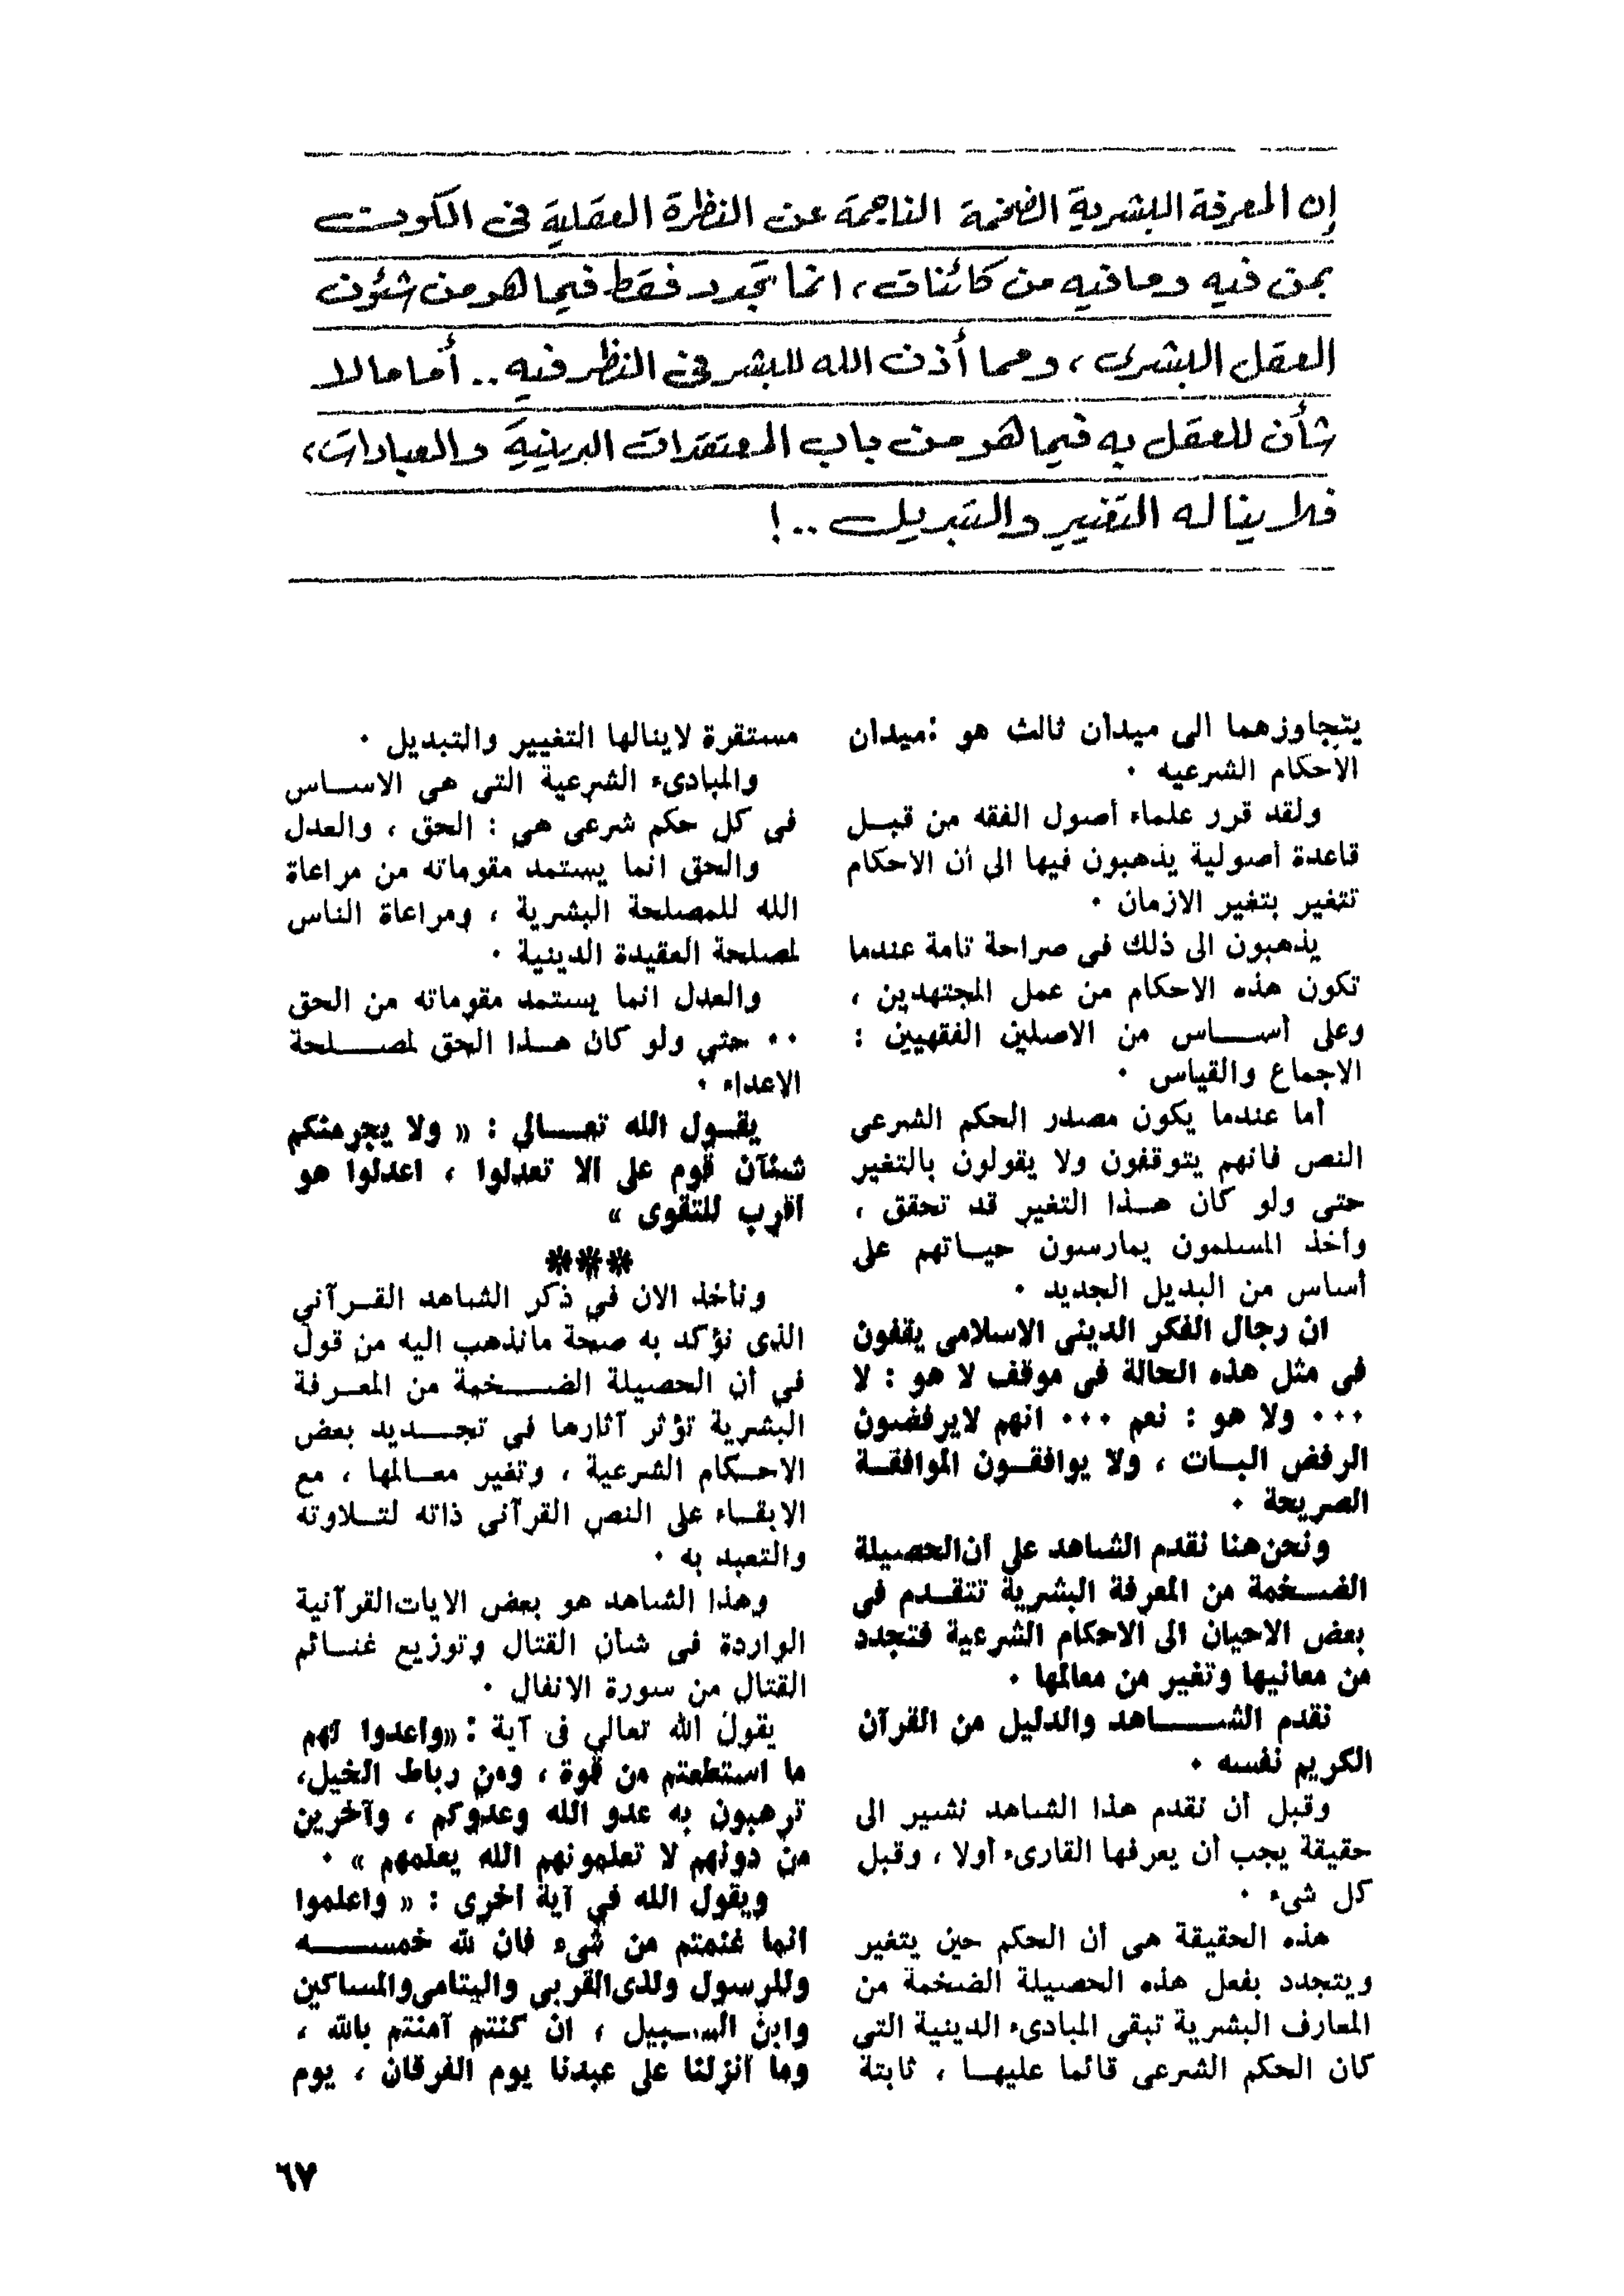 إن المعرفة البشرية الضخمة الناجمة عن النظرة العقلية فى الكون
بمن فيه وما فيه من كائنات، انما تجدد فقط فيما هو من شئون
العقل البشرى، ومما أذن الله للبشر فى النظر فيه.. أما ما لا
شأن للعقل به فيما هو من باب المعتقدات الدينية والعبادات،
فلا يناله التغيير والتبديل ..!
يتجاوزهما الى ميدان ثالث هو : ميدان
الأحكام الشرعيه .
ولقد قرر علماء أصول الفقه من قبـل
قاعدة أصولية يذهبون فيها الى أن الاحكام
تتغير بتغير الازمان .
يذهبون الى ذلك فى صراحة تامة عندما
تكون هذه الاحكام من عمل المجتهدين ،
وعلى أســـاس من الاصلين الفقهيين :
الاجماع والقياس .
أما عندما يكون مصدر الحكم الشرعى
النص فانهم يتوقفون ولا يقولون بالتغير
حتى ولو كان هـذا التغير قد تحقق ،
وأخذ المسلمون يمارسون حيـاتهم على
أساس من البديل الجديد .
ان رجال الفكر الدينى الاسلامى يقفون
فى مثل هذه الحالة فى موقف لا هو : لا
... ولا هو : نعم ... انهم لايرفضون
الرفض البـات ، ولا يوافقـون الموافقـة
الصريحة .
ونحن هنا نقدم الشاهد على أن الحصيلة
الضـخمة من المعرفة البشرية تتقـدم فى
بعض الاحيان الى الاحكام الشرعية فتجدد
من معانيها وتغير من معالمها .
نقدم الشـــاهد والدليل من القرآن
الكريم نفسه .
وقبل أن نقدم هذا الشاهد نشير الى
حقيقة يجب أن يعرفها القارىء أولا ، وقبل
كل شىء .
هذه الحقيقة هى أن الحكم حين يتغير
ويتجدد بفعل هذه الحصيلة الضخمة من
المعارف البشرية تبقى المبادىء الدينية التى
كان الحكم الشرعى قائما عليهـا ، ثابتة
مستقرة لاينالها التغيير والتبديل .
والمبادىء الشرعية التى هى الاسـاس
فى كل حكم شرعى هى : الحق ، والعدل
والحق انما يستمد مقوماته من مراعاة
الله للمصلحة البشرية ، ومراعاة الناس
لمصلحة العقيدة الدينية .
والعدل انما يستمد مقوماته من الحق
.. حتى ولو كان هـذا الحق لمصـــلحة
الاعداء .
يقـول الله تعـــالى : « ولا يجرمنكم
شنئآن قوم على الا تعدلوا ، اعدلوا هو
أقرب للتقوى »
***
ونأخذ الان في ذكر الشاهد القـرآني
الذى نؤكد به صحة مانذهب اليه من قول
في أن الحصيلة الضـــخمة من المعـرفة
البشرية تؤثر آثارها فى تجـــديد بعض
الاحـكام الشرعية ، وتغير معـالمها ، مع
الابقـاء على النص القرآنى ذاته لتـلاوته
والتعبد به .
وهذا الشاهد هو بعض الايات القرآنية
الواردة فى شأن القتال وتوزيع غنـائم
القتال من سورة الانفال .
يقول الله تعالى فى آية : «واعدوا لهم
ما استطعتم من قوة ، ومن رباط الخيل،
ترهبون به عدو الله وعدوكم ، وآخرين
من دونهم لا تعلمونهم الله يعلمهم » .
ويقول الله في آية أخرى : « واعلموا
انما غنمتم من شىء فان لله خمســـه
وللرسول ولذى القربى واليتامى والمساكين
وابن الســبيل ، ان كنتم آمنتم بالله ،
وما أنزلنا على عبدنا يوم الفرقان ، يوم
٦٧